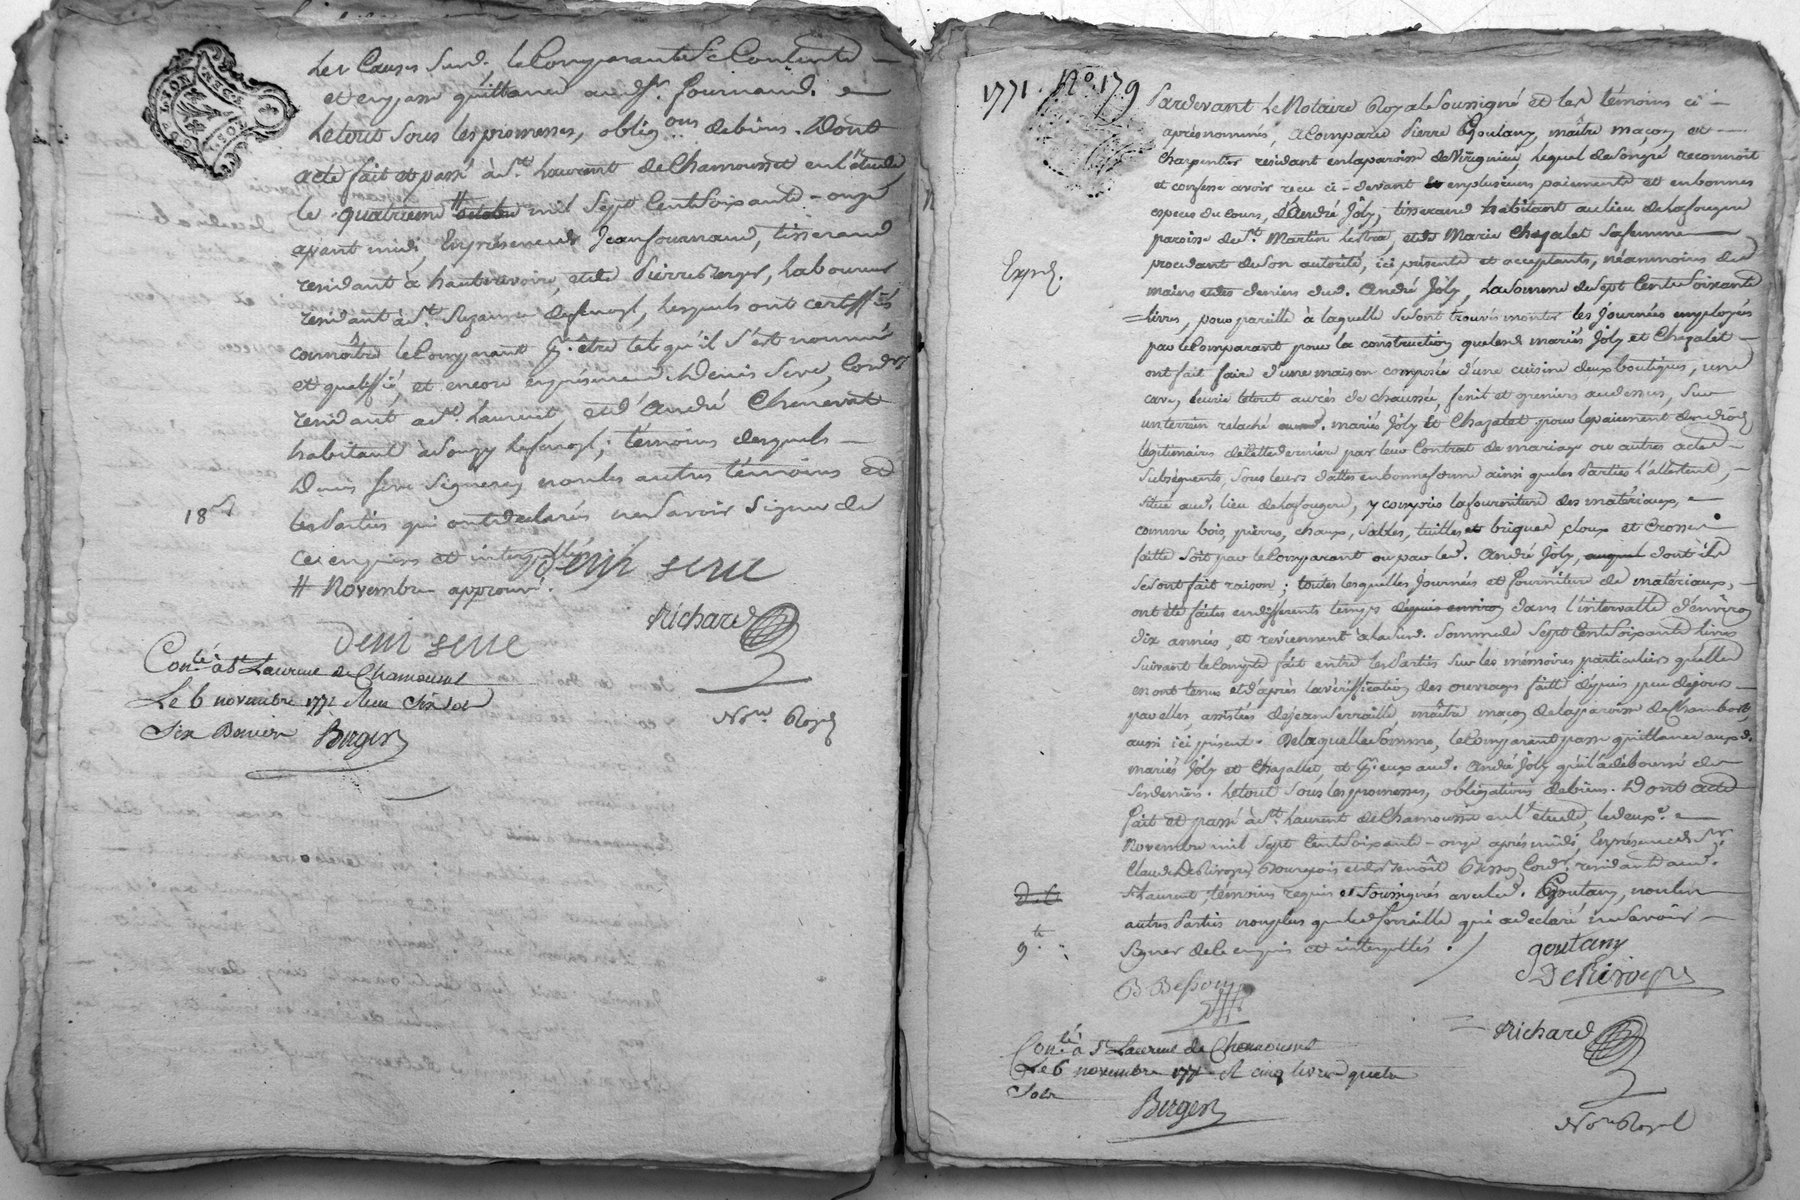 les Causes Susd. le Comparant Se Contente
et en passe quittance aud. Sr. fournand.
le tout Sous les promesses, oblig.ons de biens. Dont
acte fait et passé à St. Laurent de Chamousset en l'étude
le quatrieme # octobre mil Sept Cent Soixante-onze
avant midi, En présence de Jean fournand, tisserand
residant à hauterivoire, et de Pierre Berger, Laboureur
residant à Ste. , lesquels ont certiffiés
connoître le Comparant & être tel qu'il s'est nommé
et qualiffié, et encore en présence de Denis Serre, Cord.r
residant à St. Laurent, et d'André Chenevat
habitant à Souzy ; témoins desquels
Denis Serre Signera non les autres témoins et
les Parties qui ont déclarés ne Savoir Signer de
18.
ce enquis et interpellés
# Novembre approuvé.
Deni serre
Deni serre
Richard
Con.té à St Laurent de Chamousset
Le 6 novembre 1771 Reçu Six Sols
Six Deniers Berger
No.re Royal
1771. No. 179
Pardevant Le Notaire Royal Soussigné et les témoins ci-
après nommés, a Comparu Pierre Goutany, maître maçon et
Charpentier residant en la paroisse de Virigneu, lequel de Son gré reconnoit
et confesse avoir reçu ci-devant en plusieurs paiements et en bonnes
especes du cours, d'André Joly, tisserand habitant au lieu de la fougere
paroisse de St. Martin Lestra, et de Marie Chazalet sa femme
procedant de Son autorité, ici présents et acceptants, néanmoins des
Expéd.
mains et des deniers dud. André Joly, La Somme de Sept Cent Soixante
livres, pour pareille à laquelle Se Sont trouvés monter les Journées employés
par le Comparant pour la construction que lesd. mariés Joly et Chazalet
ont fait faire d'une maison composée d'une cuisine deux boutiques, une
cave, écurie le tout au rés de chaussé, fenil et greniers au dessus, Sur
un terrein relaché auxd. mariés Joly et Chazalet pour le paiement des droits
légitimaires de cette derniere par leur Contrat de mariage ou autres actes
Subséquents, Sous leurs dattes en bonne forme ainsi que les Parties l'attestent,
Situé aud. lieu de la fougere, y compris la fourniture des matériaux,
comme bois, pierres, chaux, Sables, tuilles et briques cloux et Crosses
faitte Soit par le Comparant ou par led. André Joly, auquel dont ils
Se Sont fait raison; toutes lesquelles Journées et fourniture de matériaux,
ont été faites en differents temps depuis environ dans l'intervalle d'environ
dix années, et reviennent à lad. Somme de Sept Cent Soixante livres
Suivant le Compte fait entre les Parties Sur les mémoires particuliers qu'elles
en ont tenus et d'après la vériffication des ouvrages faitte depuis peu de jours
par elles assistées de Jean ferraille, maître maçon de la paroisse de Chambost,
aussi ici présent. De laquelle Somme, le Comparant passe quittance auxd.
mariés Joly et Chazallet, et eux aud. André Joly qui l'a déboursé de
Ses deniers. Le tout Sous les promesses, obligations de biens. Dont acte
fait et passé à St. Laurent de Chamousset en l'étude, le deux.e
Novembre mil Sept Cent Soixante-onze après midi, En présence de Sr.
Claude DeRivoyre Bourgeois et de Benoît Besson Cord.r residants aud.
St Laurent, témoins requis et Soussignés avec led. Goutany, non les
autres Parties non plus que led. ferraille qui a declaré ne Savoir
9.
Signer de ce enquis et interpellés.
goutany
DeRivoyre
B Besson
Richard
Con.té à St Laurent de Chamousset
Le 6 novembre 1771 R cinq livres quatre
Sols
Berger
No.re Royal